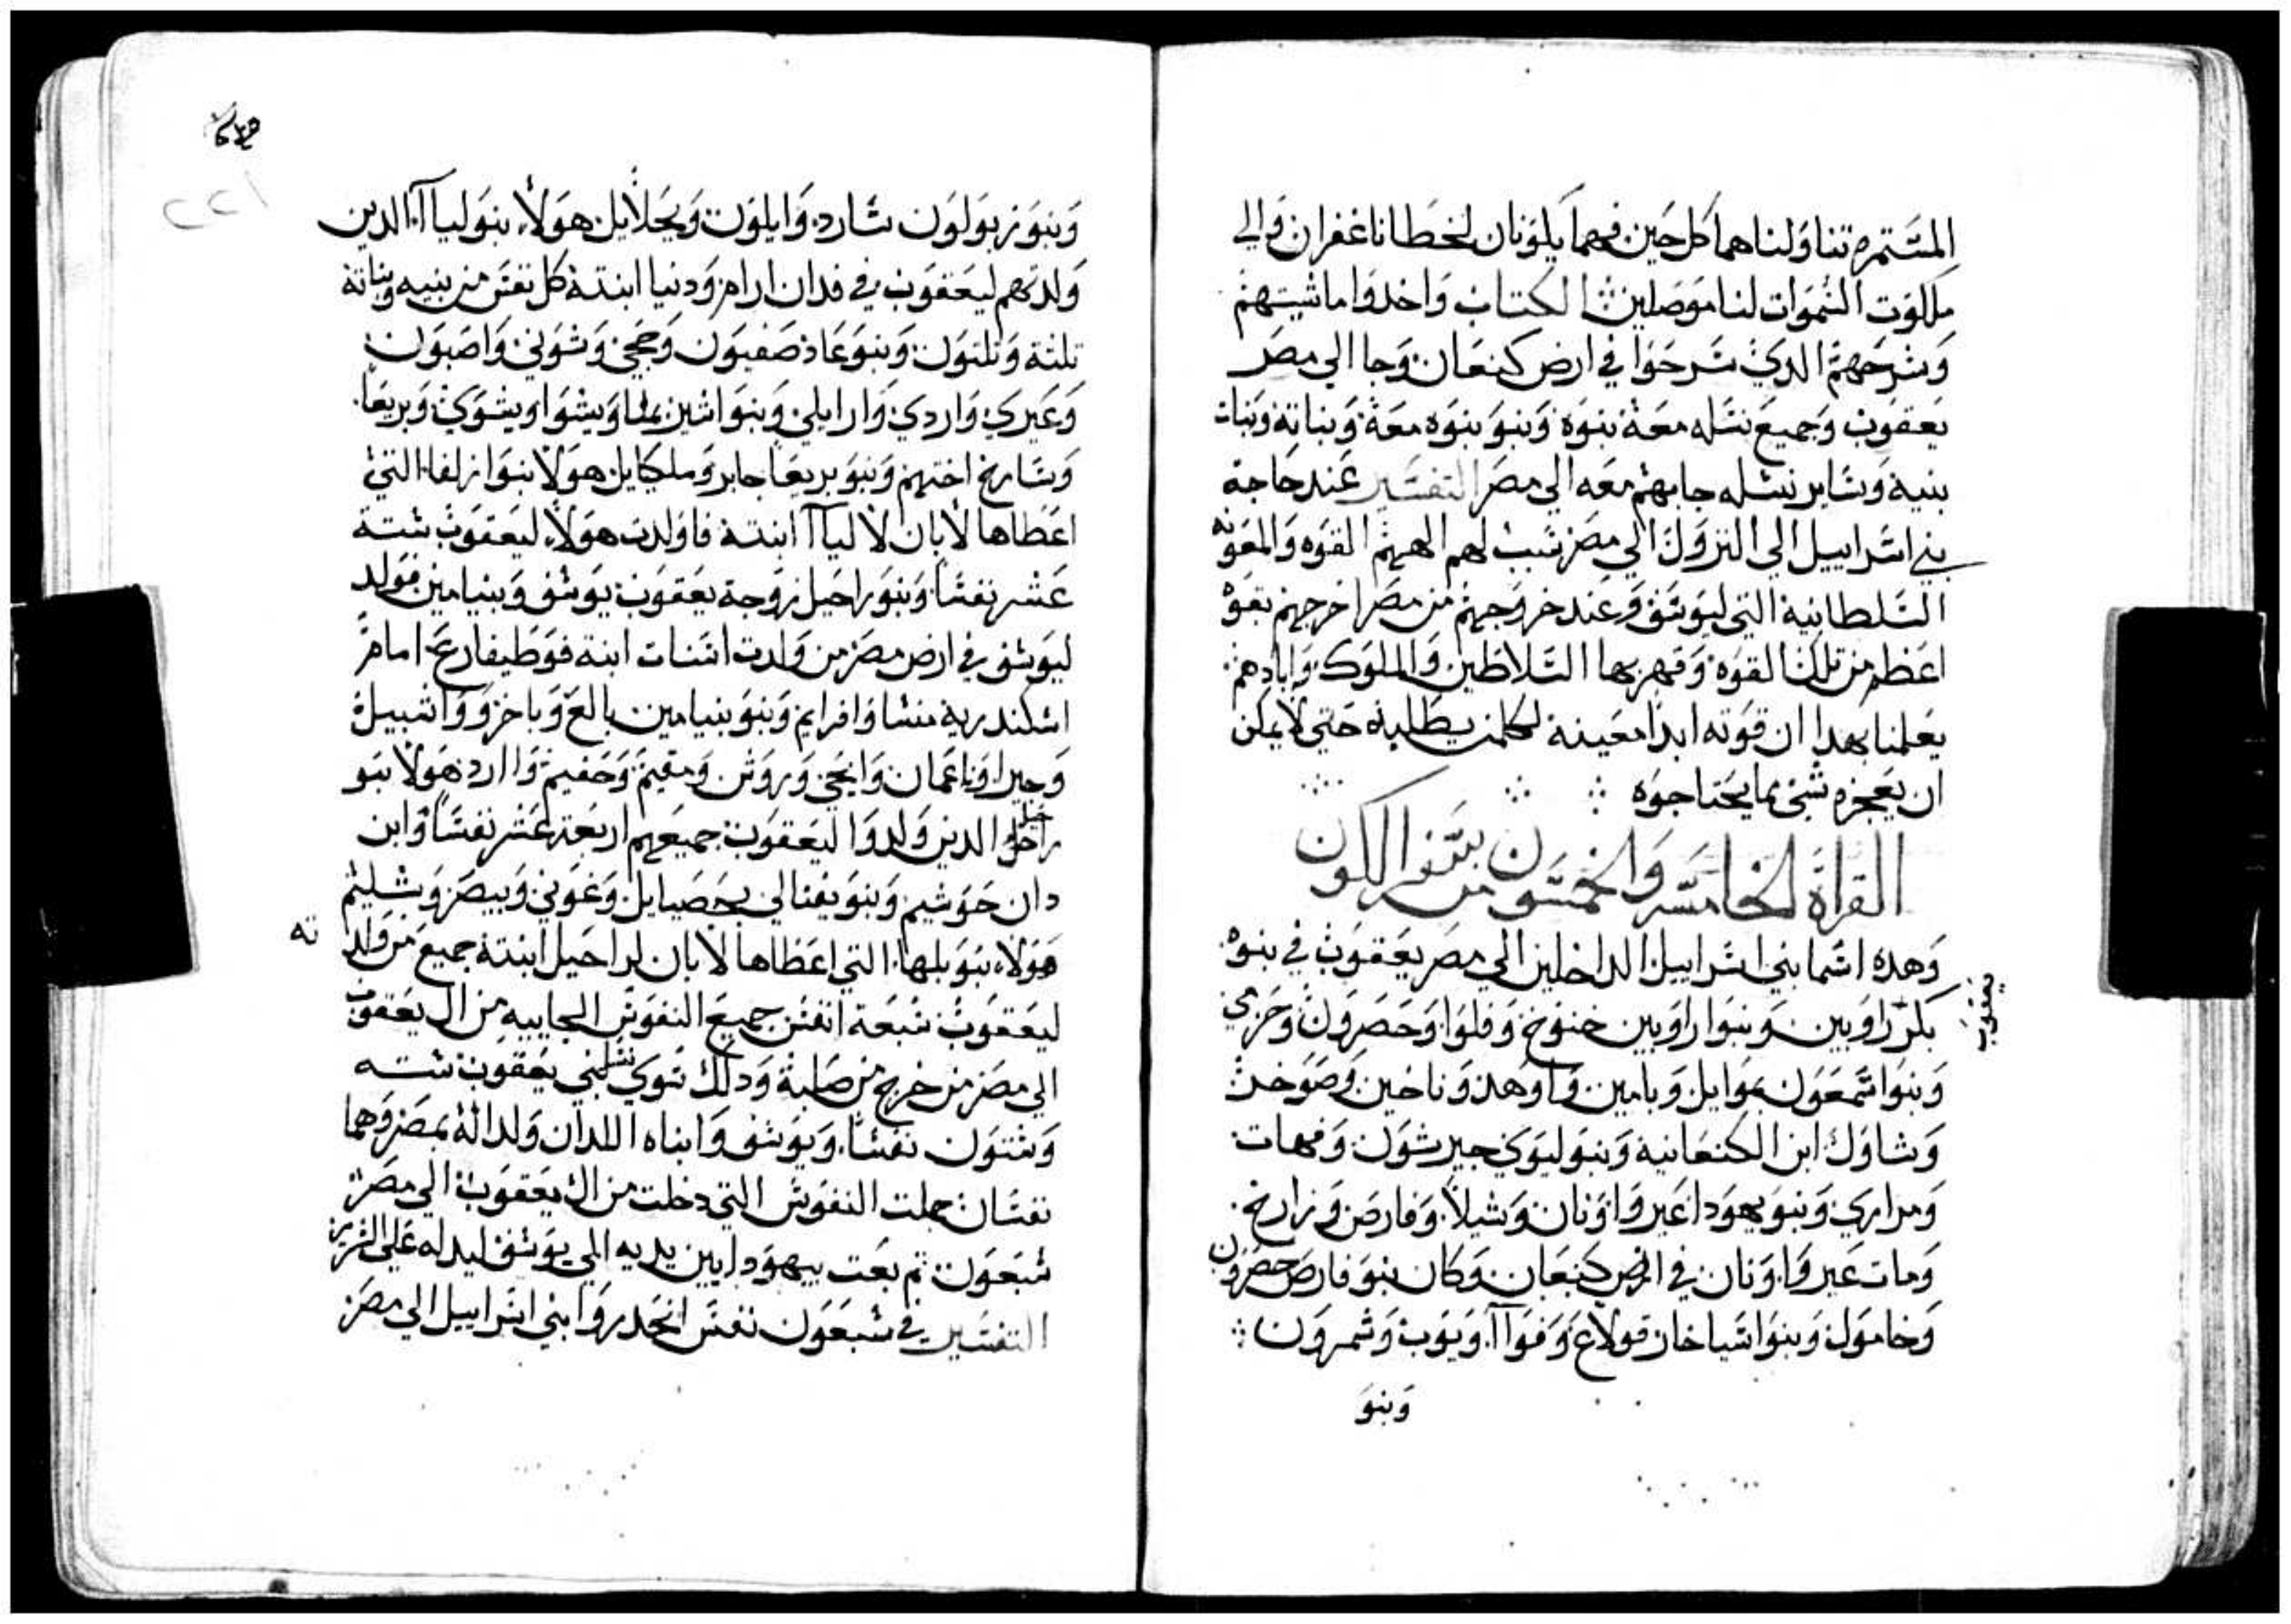 المستمره تناولناهما كل حين فهما يكونان لخطايانا غفران والي
ملكوت السموات لنا موصلين الكتاب واخدوا ماشيتهم
وسرحهم الدي سرحوا في ارض كنعان وجا الي مصر
يعقوب وجميع نسله معه بنوه وبنو بنوه معه وبناته وبنات
بنيه وساير نسله جابهم معه الي مصر التفسير عند حاجة
بني اسراييل الي النزول الي مصر سبب لهم الههم القوه والمعونه
السلطانية التي ليوسف وعند خروجهم من مصر اخرجهم بقوه
اعظم من تلك القوه وقهر بها السلاطين والملوك وابادهم
يعلمنا بهدا ان قوته ابدا معينة لكلمن يطلبه حتي لا يمكن
ان يعجزه شي مما يحتاجوه
القراة الخامسه والخمسون من سفر الكون
وهده اسما بني اسراييل الداخلين الي مصر يعقوب في بنوه
يعقوب
بكر راوبين وبنوا راوبين خنوخ وفلوا وحصرون وحرمي
وبنوا شمعون يموايل ويامين واوهد وناخين وصوخد
وشاول ابن الكنعانيه وبنو ليوي جيرشون وقهات
ومراري وبنو يهودا عير واونان وشيلا وفارص وزارخ
ومات عير واونان في ارض كنعان وكان بنو فارص حصرون
وخامول وبنوا اشياخار قولاع وفوآا ويوب وشمرون
وبنو
٢٢١
وبنو زبولون سارد وايلون ويحلايل هولاء بنو ليآا الدين
ولدتهم ليعقوب في فدان ارام ودنيا ابنته كل نفس من بنيه وبناته
تلتة وتلتون وبنو عاد صفيون وحجي وشوني واصبون
وعيري واردي وارايلي وبنوا اشير يمنا ويشوا ويشوي وبريعا
وسارخ اختهم وبنو بريعا حابر وملكايل هولا بنوا زلفا التي
اعطاها لابان لاليآا ابنته فاولدت هولاء ليعقوب ستة
عشر نفسا وبنو راحيل زوجة يعقوب يوسف وبنيامين فولد
ليوسف في ارض مصر من ولدت اسنات ابنة فوطيفارع امام
اسكندرية منشا وافرايم وبنو بنيامين بالع وباخر وواشبيل
وجيرا وناعمان وايحي وروش ومفيم وحفيم واارد هولا بنو
راحيل الدين ولدوا ليعقوب جميعهم اربعة عشر نفسا وابن
دان حوشيم وبنو يفتالي يحصيايل وغوني وييصر وشليم
هولاء بنو بلها التي اعطاها لابان لراحيل ابنته جميع من ولدته
ليعقوب سبعة انفس جميع النفوس الجاييه من ال يعقوب
الي مصر من خرج من صلبة ودلك سوي نسا بني يعقوب سته
وستون نفسا ويوسف وابناه اللدان ولدا له بمصر وهما
نفسان جملت النفوس التي دخلت من ال يعقوب الي مصر
سبعون تم بعت بيهودا بين يديه الي يوسف ليدله علي
التفسير في سبعون نفس انحدروا بني اسراييل الي مصر